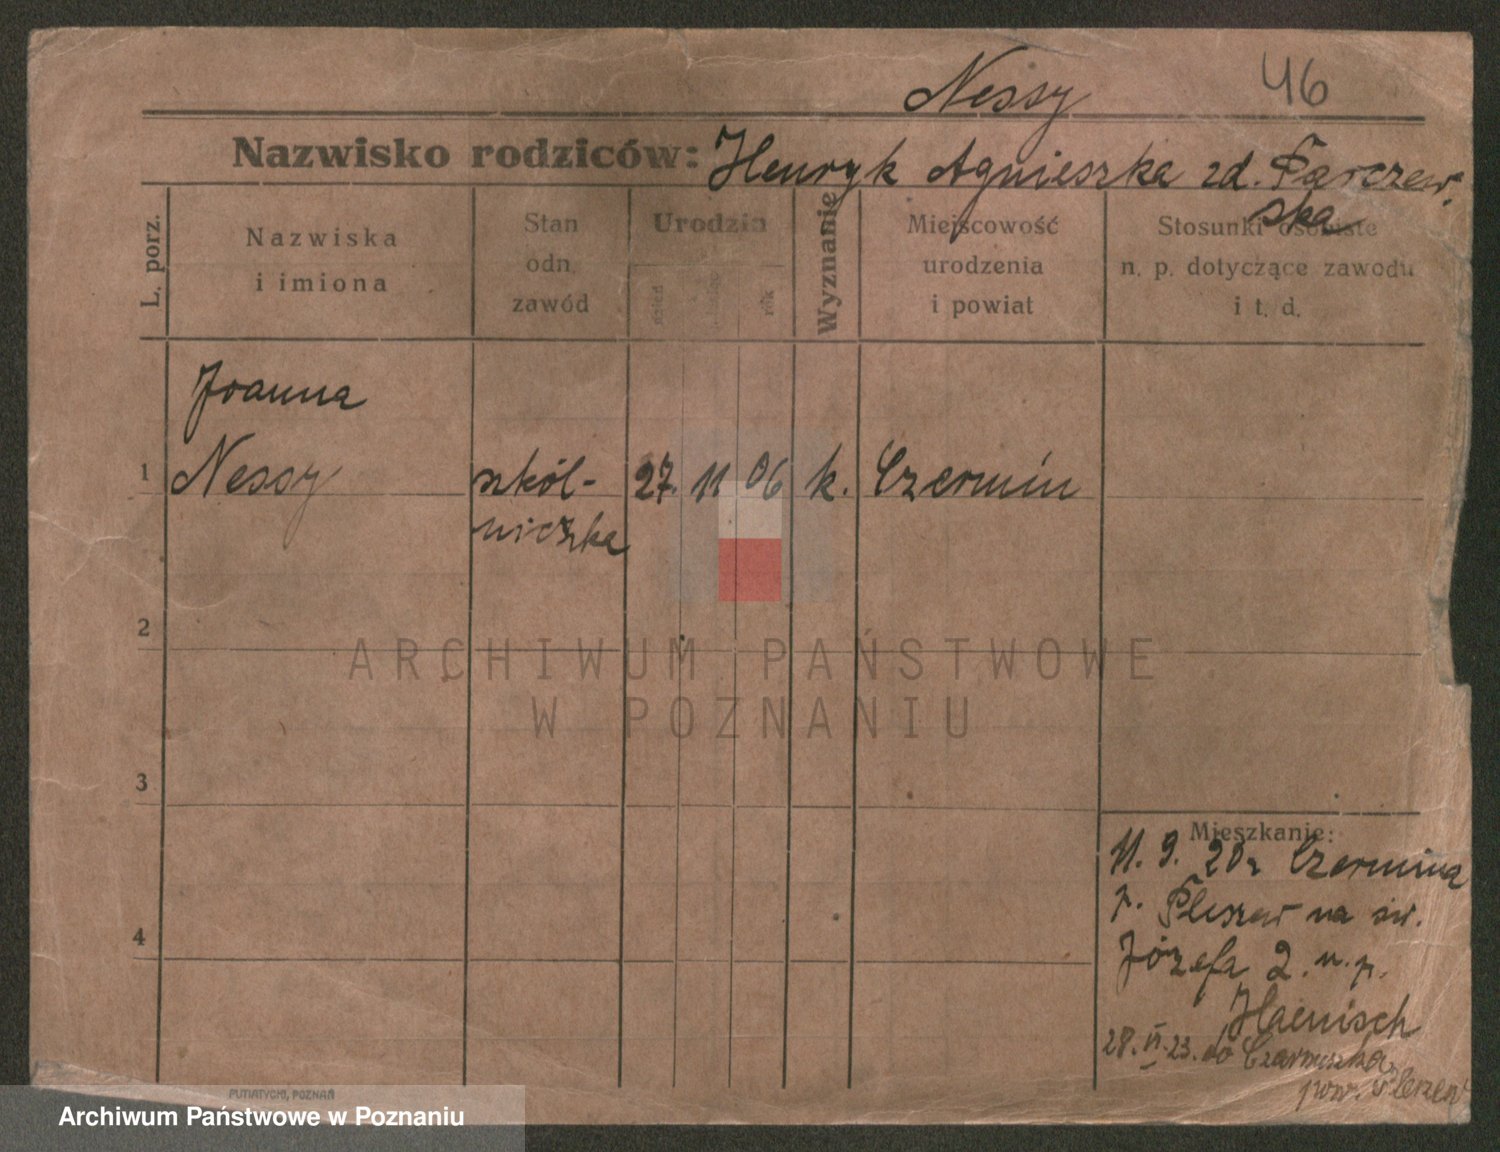 Nessy 46
Nazwisko rodziców: Henryk Agnieszka zd. Parczew-
ska
L. porz.
Nazwiska
i imiona
Stan
odn.
zawód
Urodzin
dzień
rok
Wyznanie
Miejscowość
urodzenia
i powiat
Stosunki osobiste
n. p. dotyczące zawodu
i t. d.
Joanna
1 Nessy szkól- 27. 11 06 k. Czermin
niczka
2
3
4
Mieszkanie:
11. 9. 20 z Czermina
p. Pleszew na św.
Józefa 2. u. p.
Haenisch
28. VI. 23. do Czarnuszka
pow. Pleszew
PUTIATYCKI, POZNAŃ
ARCHIWUM PAŃSTWOWE
W POZNANIU
Archiwum Państwowe w Poznaniu